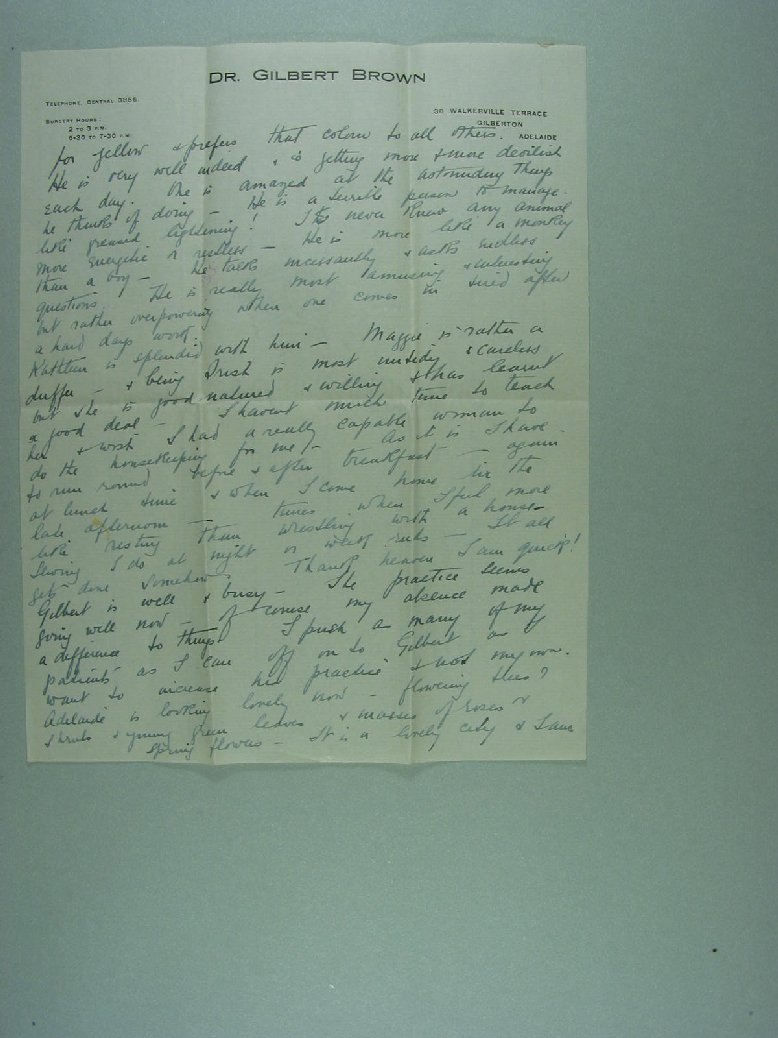 DR. GILBERT BROWN
TELEPHONE, CENTRAL 3886.
SURGERY HOURS:
2 TO 3 P.M.
6-30 TO 7-30 P.M.
36 WALKERVILLE TERRACE
GILBERTON
ADELAIDE
for yellow & prefers that colour to all others.
He is very well indeed & is getting more & more devilish
each day. One is amazed at the astounding things
he thinks of doing - He is a terrible person to manage.
like greased lightening! I've never known any animal
more energetic or restless - He is more like a monkey
than a boy - He talks incessantly & asks endless
questions. He is really most amusing & interesting
but rather overpowering when one comes in tired after
a hard days work.
Kathleen is splendid with him - Maggie is rather a
duffer - & being Irish is most untidy & careless
but she is good natured & willing & has learnt
a good deal - I havent much time to teach
her & wish I had a really capable woman to
do the housekeeping for me - As it is I have
to run round before & after breakfast - again
at lunch time & when I come home in the
late afternoon - times when I feel more
like resting than wrestling with a house-
Sewing I do at night or week ends - It all
gets done somehow. Thank heaven I am quick!
Gilbert is well & busy - The practice seems
going well now - of course my absence made
a difference to things. I push as many of my
patients as I can off on to Gilbert as I
want to increase his practice & not my own.
Adelaide is looking lovely now - flowering trees &
shrubs & young green leaves & masses of roses &
spring flowers - It is a lovely city & I am